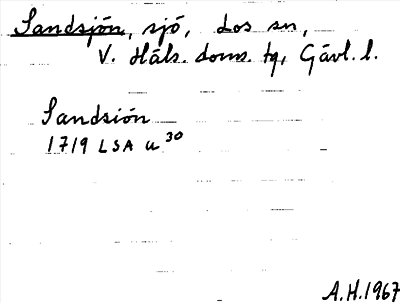 Sandsjön, sjö, Los sn,
V. Häls. doms. tg, Gävl. l.
Sandsión
1719 LSA U 30
A.H. 1967